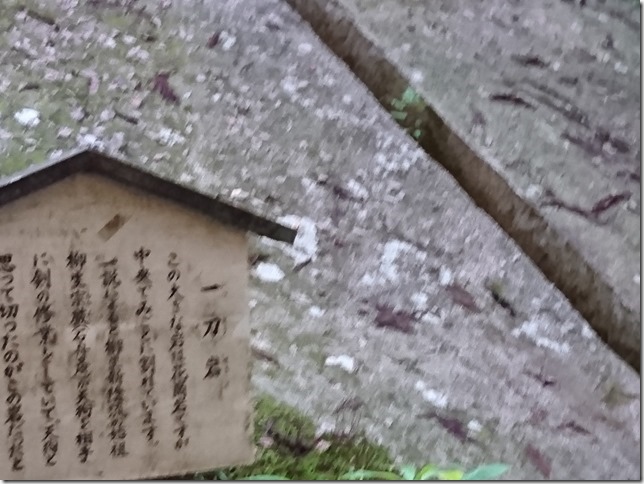 一刀岩
この大きな岩は花崗岩ですが
中央でみごとに割れています。
一説によると柳生新陰流の始祖
柳生宗厳石舟斎が天狗を相手
に剣の修業をしていて、天狗と
思って切ったのがこの岩だったと